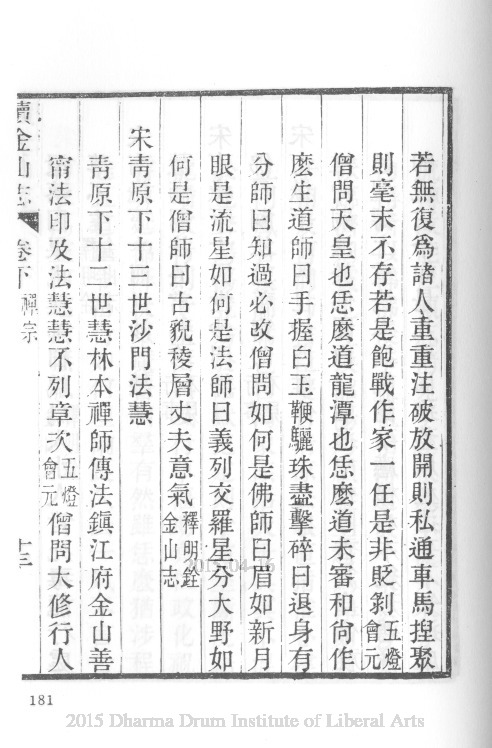 若無復爲諸人重重注破放開則私通車馬揑聚
則毫末不存若是飽戰作家一任是非貶剝五燈會元
僧問天皇也恁麽道龍潭也恁麽道未審和尙作
麽生道師曰手握白玉鞭驪珠盡擊碎曰退身有
分師曰知過必改僧問如何是佛師曰眉如新月
眼是流星如何是法師曰義列交羅星分大野如
何是僧師曰古貌稜層丈夫意氣釋明銓金山志
宋靑原下十三世沙門法慧
靑原下十二世慧林本禪師傳法鎭江府金山善
甯法印及法慧慧不列章次五燈會元僧問大修行人
續金山志 卷下 禪宗 十三
181
2015 Dharma Drum Institute of Liberal Arts